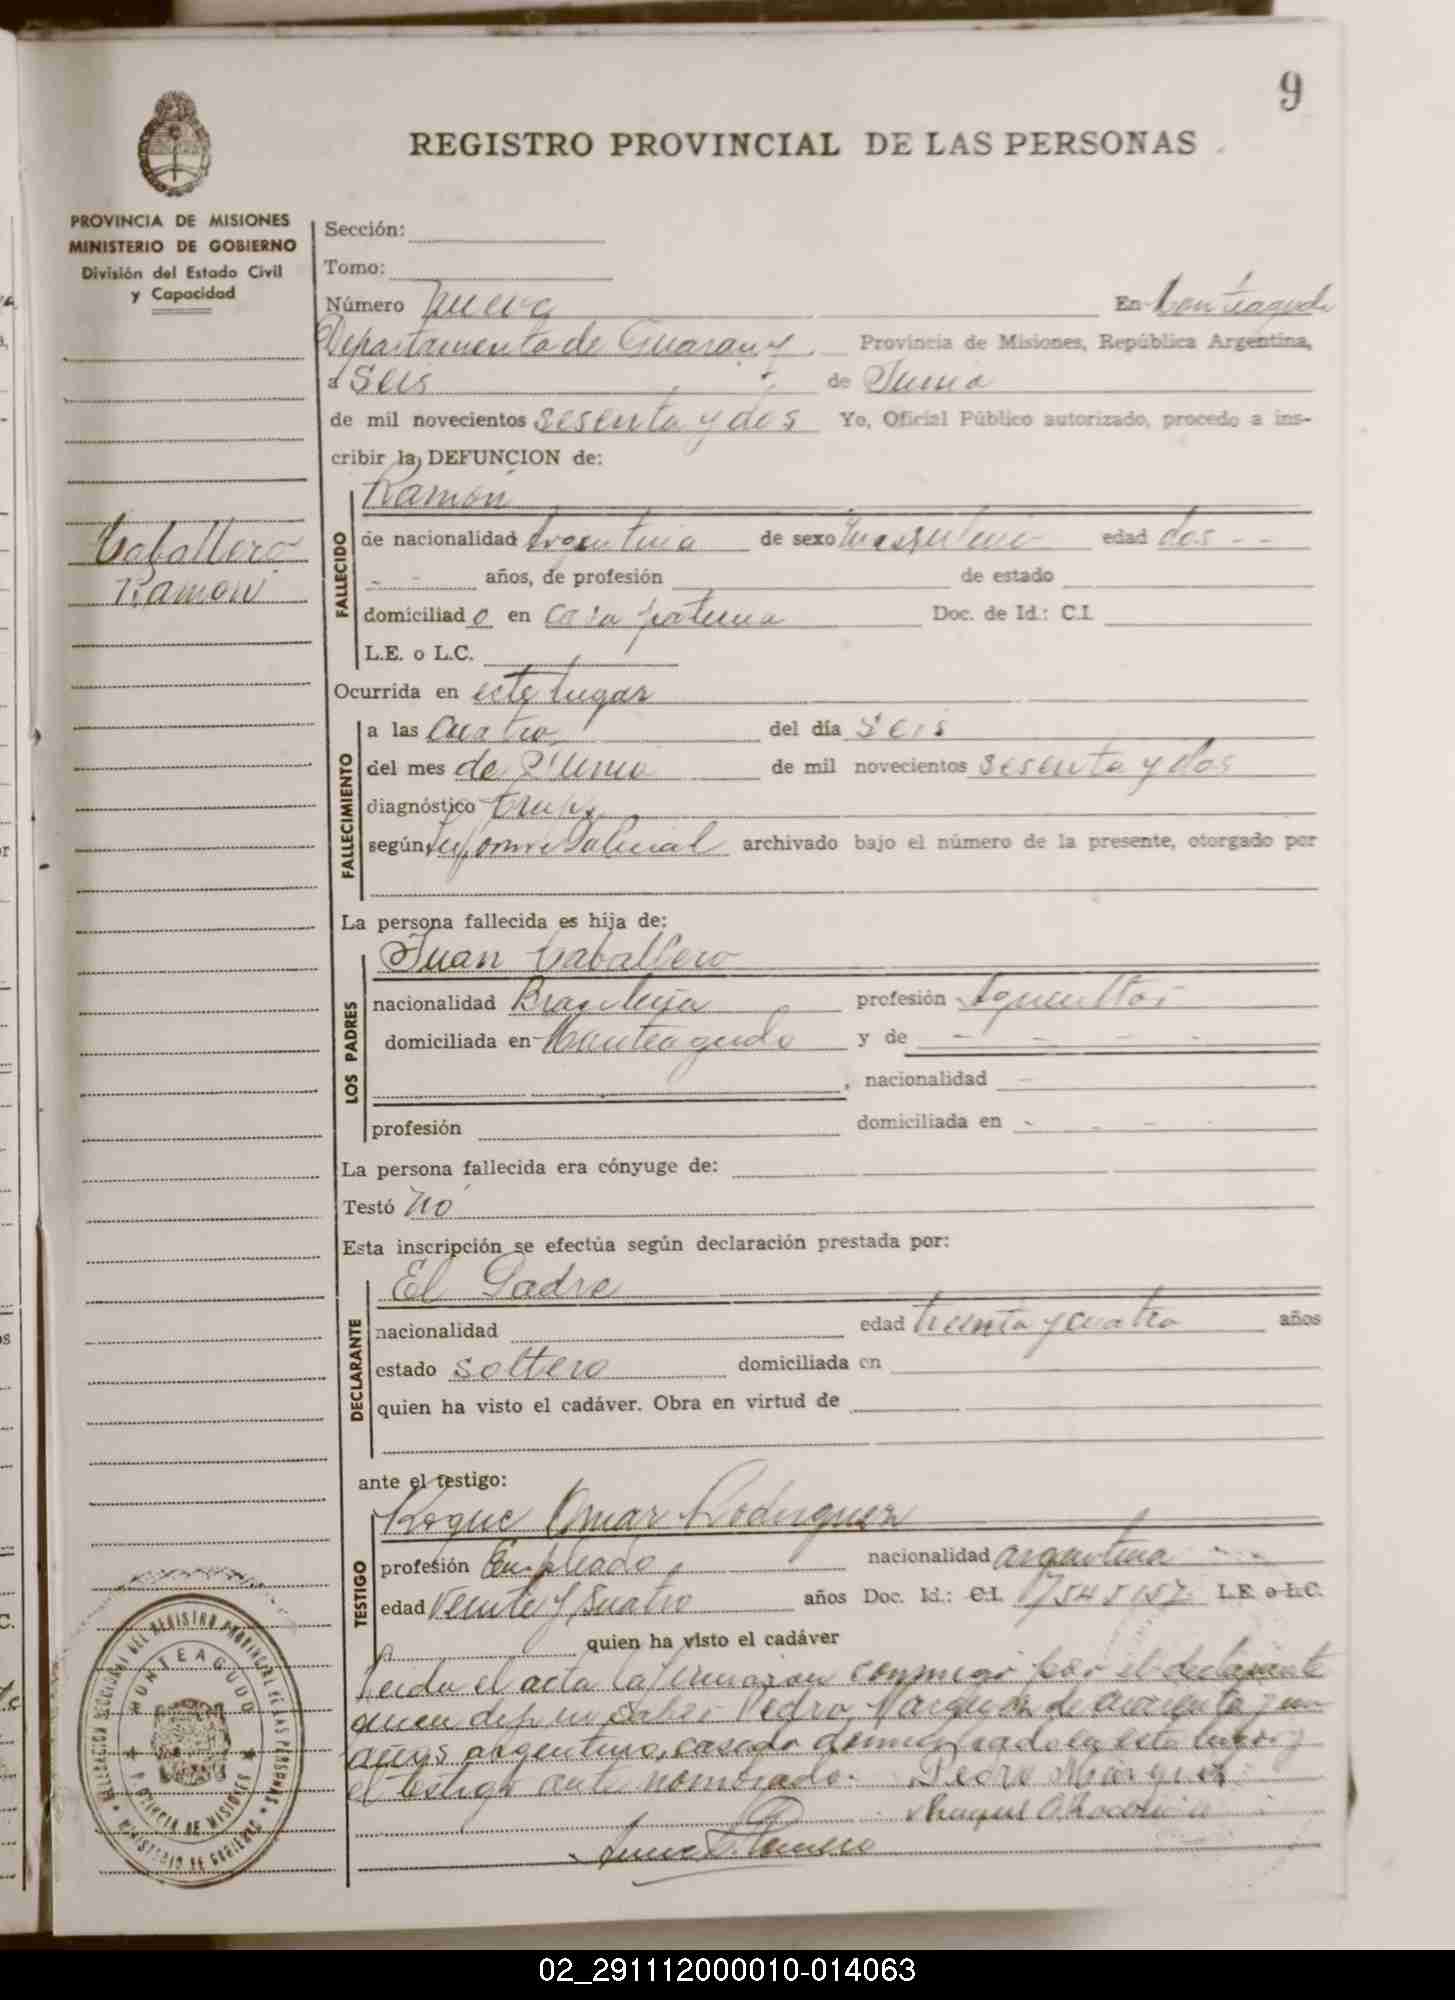 9
REGISTRO PROVINCIAL DE LAS PERSONAS
PROVINCIA DE MISIONES
MINISTERIO DE GOBIERNO
División del Estado Civil
y Capacidad
Caballero
Ramón
Sección:
Tomo:
Número nueve En Monteagudo
Departamento de Guarany Provincia de Misiones, República Argentina,
a Seis de Junio
de mil novecientos sesenta y dos Yo, Oficial Público autorizado, procedo a ins-
cribir la DEFUNCION de:
FALLECIDO
Ramón
de nacionalidad Argentina de sexo masculino edad dos - -
- - años, de profesión de estado
domiciliado en casa paterna Doc. de Id.: C.I.
L.E. o L.C.
Ocurrida en este lugar
FALLECIMIENTO
a las Cuatro del día Seis
del mes de Junio de mil novecientos sesenta y dos
diagnóstico
según Informe Policial archivado bajo el número de la presente, otorgado por
La persona fallecida es hija de:
LOS PADRES
Juan Caballero
nacionalidad Brasileña profesión
domiciliada en Monteagudo y de - - - -
, nacionalidad -
profesión domiciliada en - - - -
La persona fallecida era cónyuge de:
Testó no
Esta inscripción se efectúa según declaración prestada por:
DECLARANTE
El Padre
nacionalidad edad treinta y cuatro años
estado soltero domiciliada en
quien ha visto el cadáver. Obra en virtud de
ante el testigo:
TESTIGO
Roque Omar Rodriguez
profesión Empleado nacionalidad argentina
edad Veinte y Cuatro años Doc. Id.: C.I. L.E. o L.C.
quien ha visto el cadáver
Leida el acta la firmaron conmigo por el declarante
quien dijo no saber Pedro Marquez de cuarenta y un
años argentino, casado domiciliado en este lugar y
el testigo ante nombrado. Pedro Marquez
DELEGACION SECCIONAL DEL REGISTRO PROVINCIAL DE LAS PERSONAS
MONTEAGUDO
PROVINCIA DE MISIONES
MINISTERIO DE GOBIERNO
02_291112000010-014063